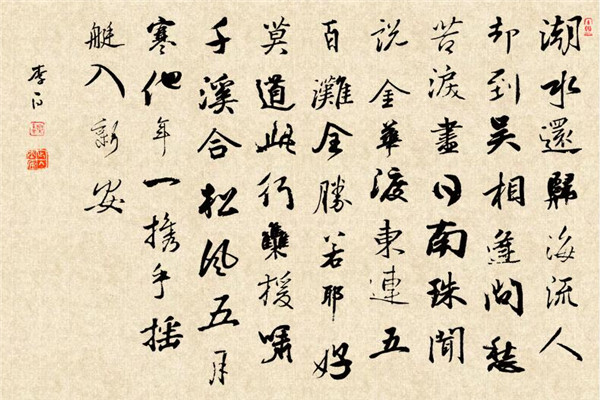 湖水還歸海流人
却到吴相逢问愁
苦淚盡日南珠聞
説金華渡東連五
百灘全勝若耶好
莫道此行難猿嘯
千溪合松风五月
寒他年一携手摇
艇入新安
李白